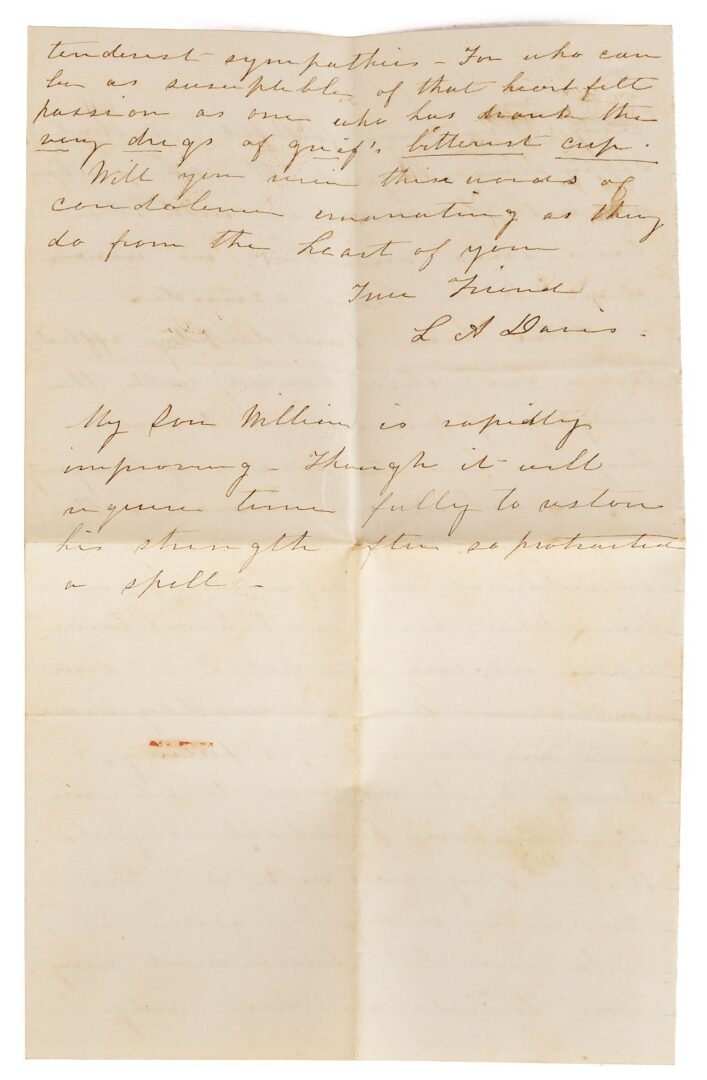 tenderest sympathies - For who can
be as susceptible of that heartfelt
passion as one who has drank the
very dregs of grief's bitterest cup.
Will you these words of
condolence emanating as they
do from the heart of your
True Friend
L A Davis -
My Son William is rapidly
improving - Though it will
require time fully to restore
his strength after so protracted
a spell -